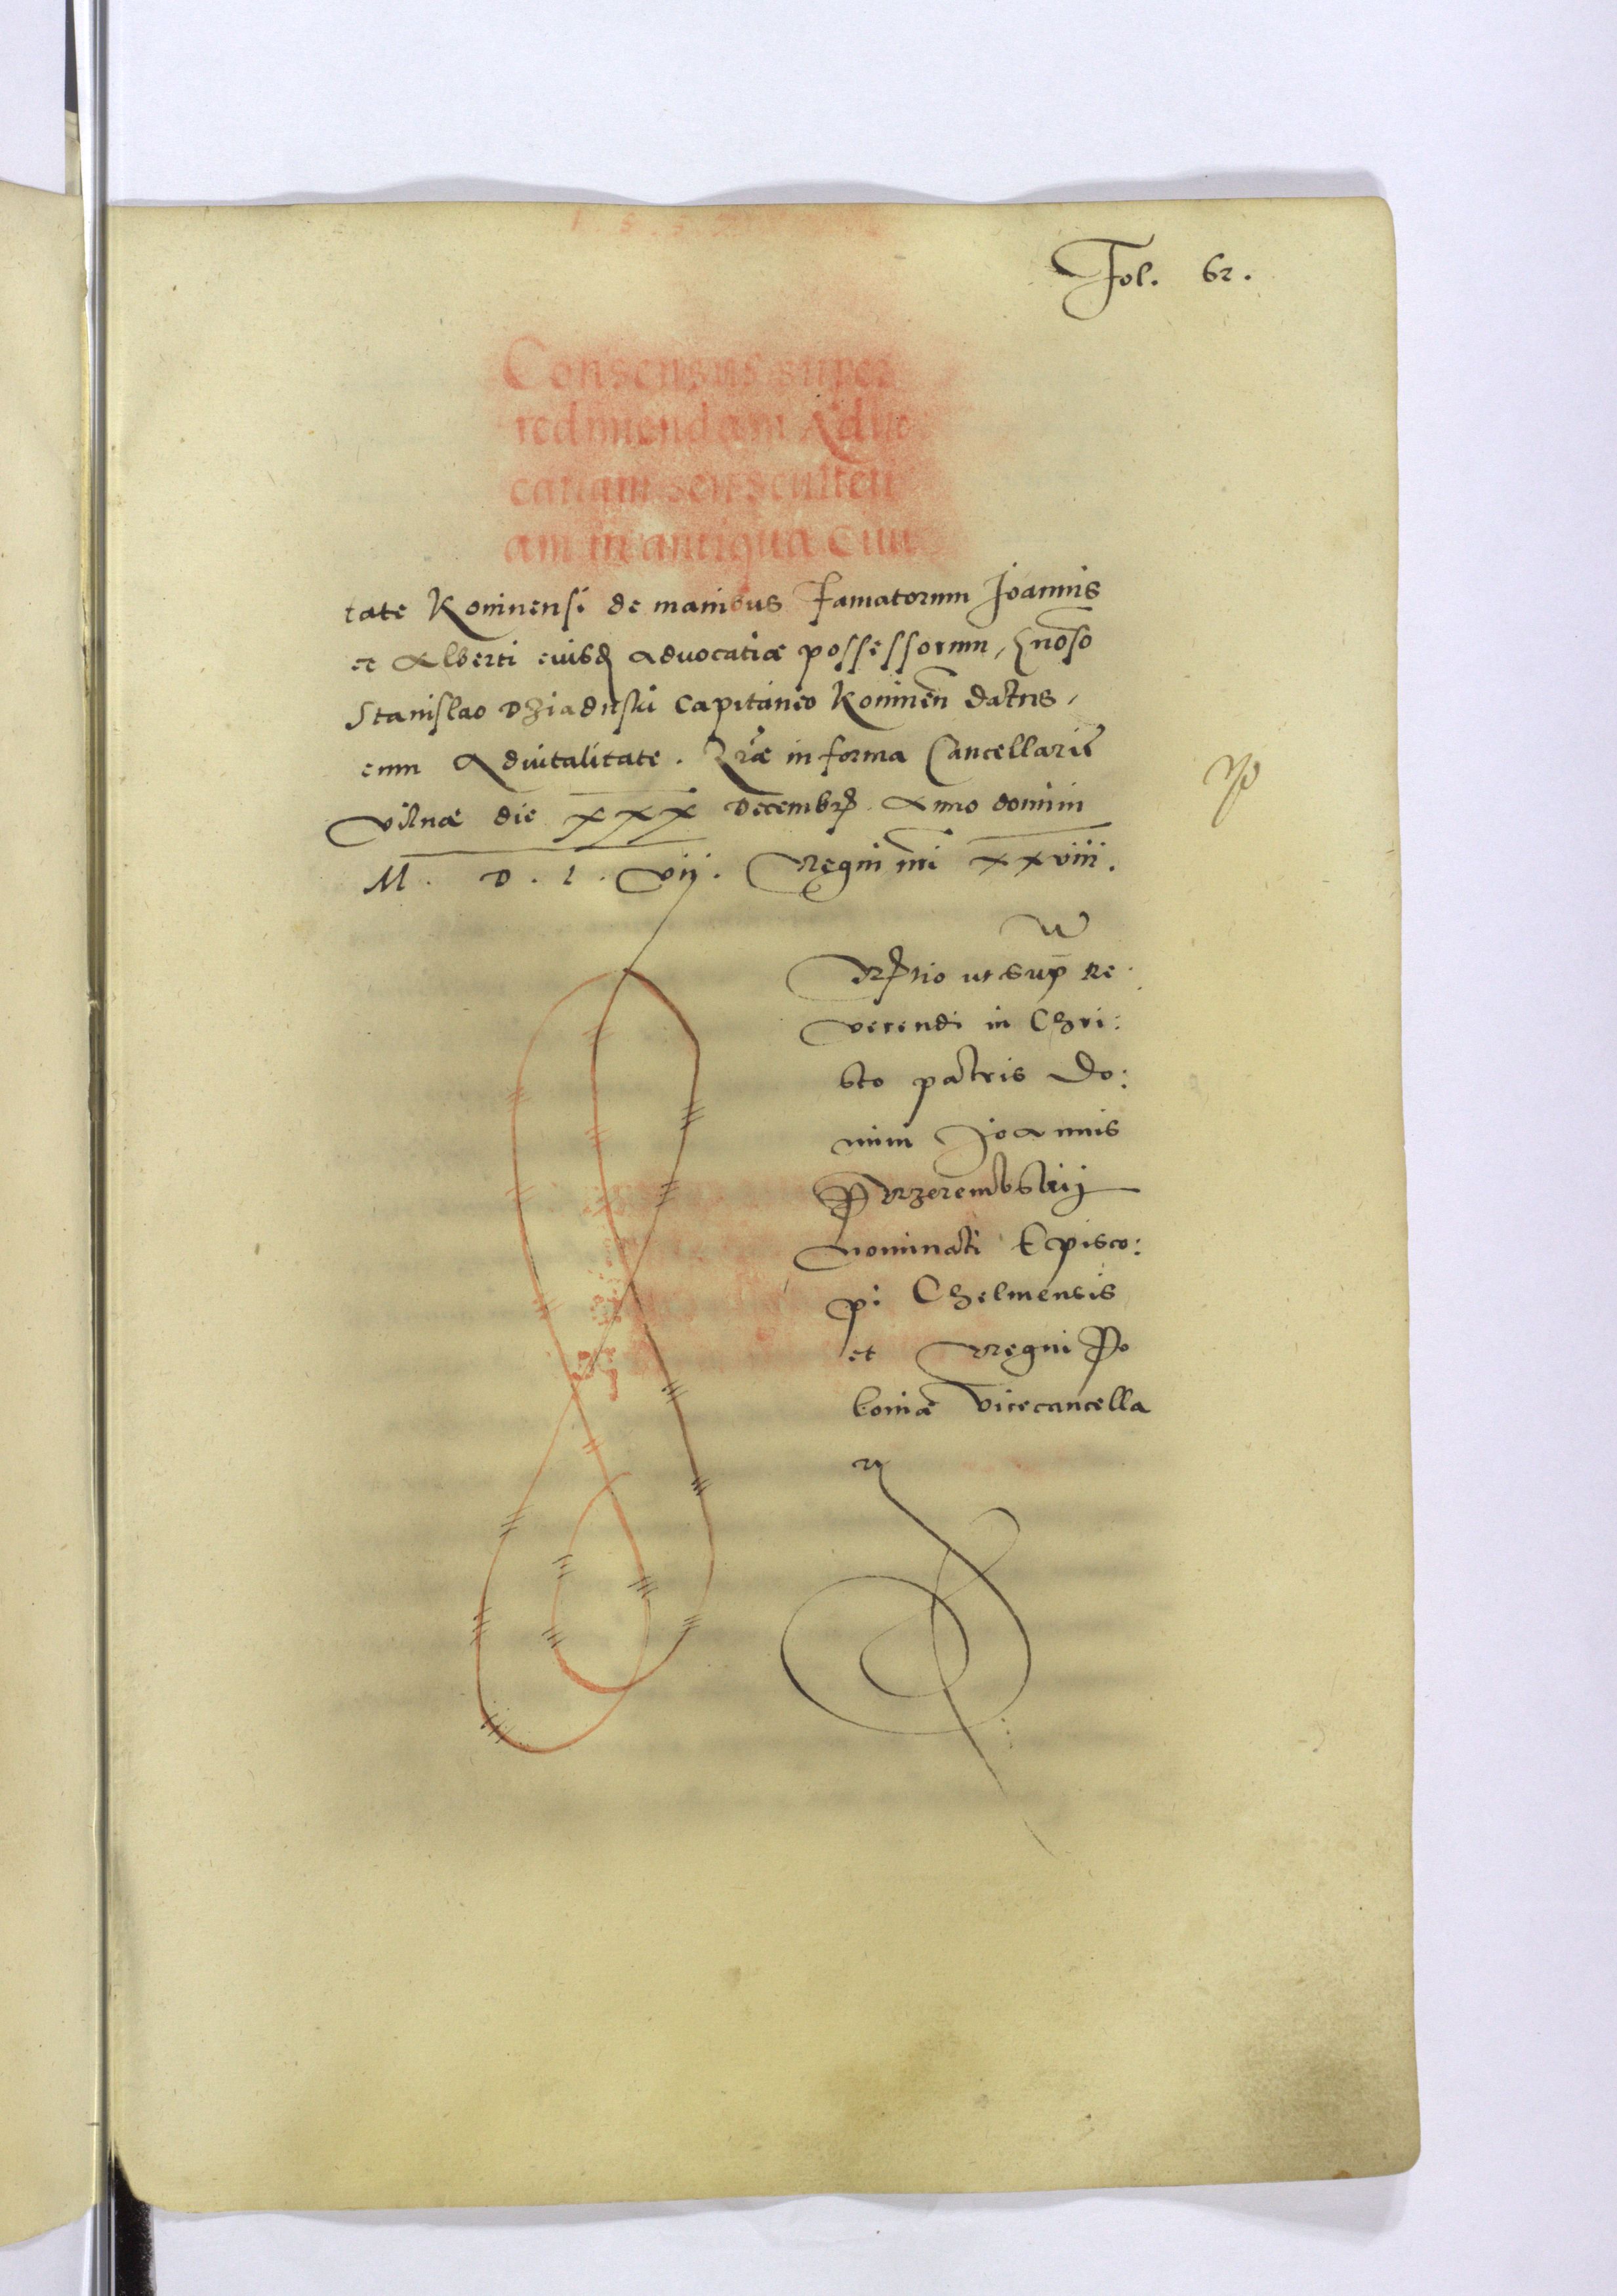 Fol. 62.
Consensus super
redimendam Aduo
catiam seu sculteti
am in antiqua Ciui
tate Koninensi de manibus Famatorum Joannis
et Alberti eiusd advocatiæ possessorum, Gnoso
Stanislao Dziaduski Capitaneo Koninen̄ datus,
cum Advitalitate. Lræ in forma Cancellariæ
Vilnæ die XXX Decembr̄ Anno domini
M. D. L. vij. Regni nr̄i XXviii.
Rltio ut sup̄ Re
verendi in Chri:
sto patris Do:
mini Joannis
Przerembskij
nominati Episco:
pi Chelmensis
et Regni Po
loniæ Vicecancella
rij